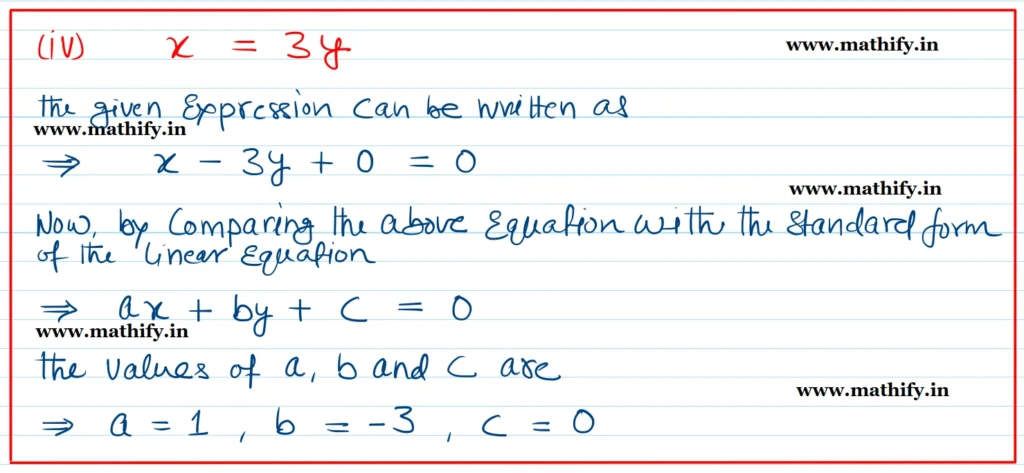 (iv) x = 3y
www.mathify.in
the given Expression can be written as
www.mathify.in
⇒ x - 3y + 0 = 0
www.mathify.in
Now, by Comparing the above Equation with the standard form
of the linear Equation
⇒ ax + by + c = 0
www.mathify.in
the values of a, b and c are
www.mathify.in
⇒ a = 1 , b = -3 , c = 0